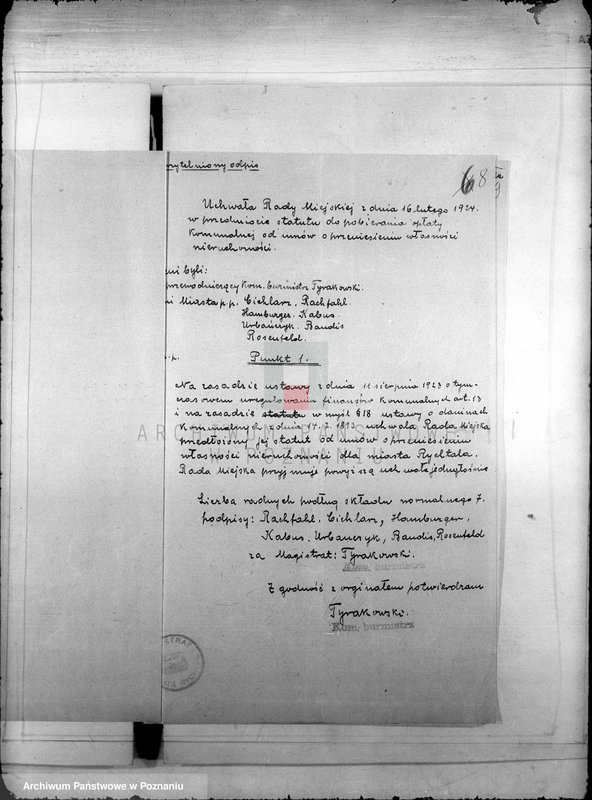 rzytelniony odpis
68
Uchwała Rady Miejskiej z dnia 16 lutego 1924.
w przedmiocie statutu do pobierania opłaty
komunalnej od umów o przeniesieniu własności
nieruchomości.
ni byli:
przewodniczący Kom. burmistrz Tyrakowski.
ni Miasta p.p. Cichlarz, Rachfahl.
Hamburger. Kabus.
Urbańczyk. Baudis
Rosenfeld.
.p.
Punkt 1.
Na zasadzie ustawy z dnia 11 sierpnia 1923 o tym-
czasowem uregulowaniu finansów Komunalnych art. 13
i na zasadzie statutu w myśl §18 ustawy o daninach
Komunalnych z dnia 14.7.1893 uchwala Rada Miejska
przedłożony jej statut od umów o przeniesieniu
własności nieruchomości dla miasta Rychtala.
Rada Miejska przyjmuje powyższą uchwałę jednogłośnie
Liczba radnych podług składu normalnego 7.
podpisy: Rachfahl. Cichlarz, Hamburger.
Kabus. Urbańczyk, Baudis, Rosenfeld
za Magistrat: Tyrakowski.
Kom. burmistrz
Zgodność z orginałem potwierdzam
Tyrakowski.
Kom. burmistrz
Archiwum Państwowe w Poznaniu